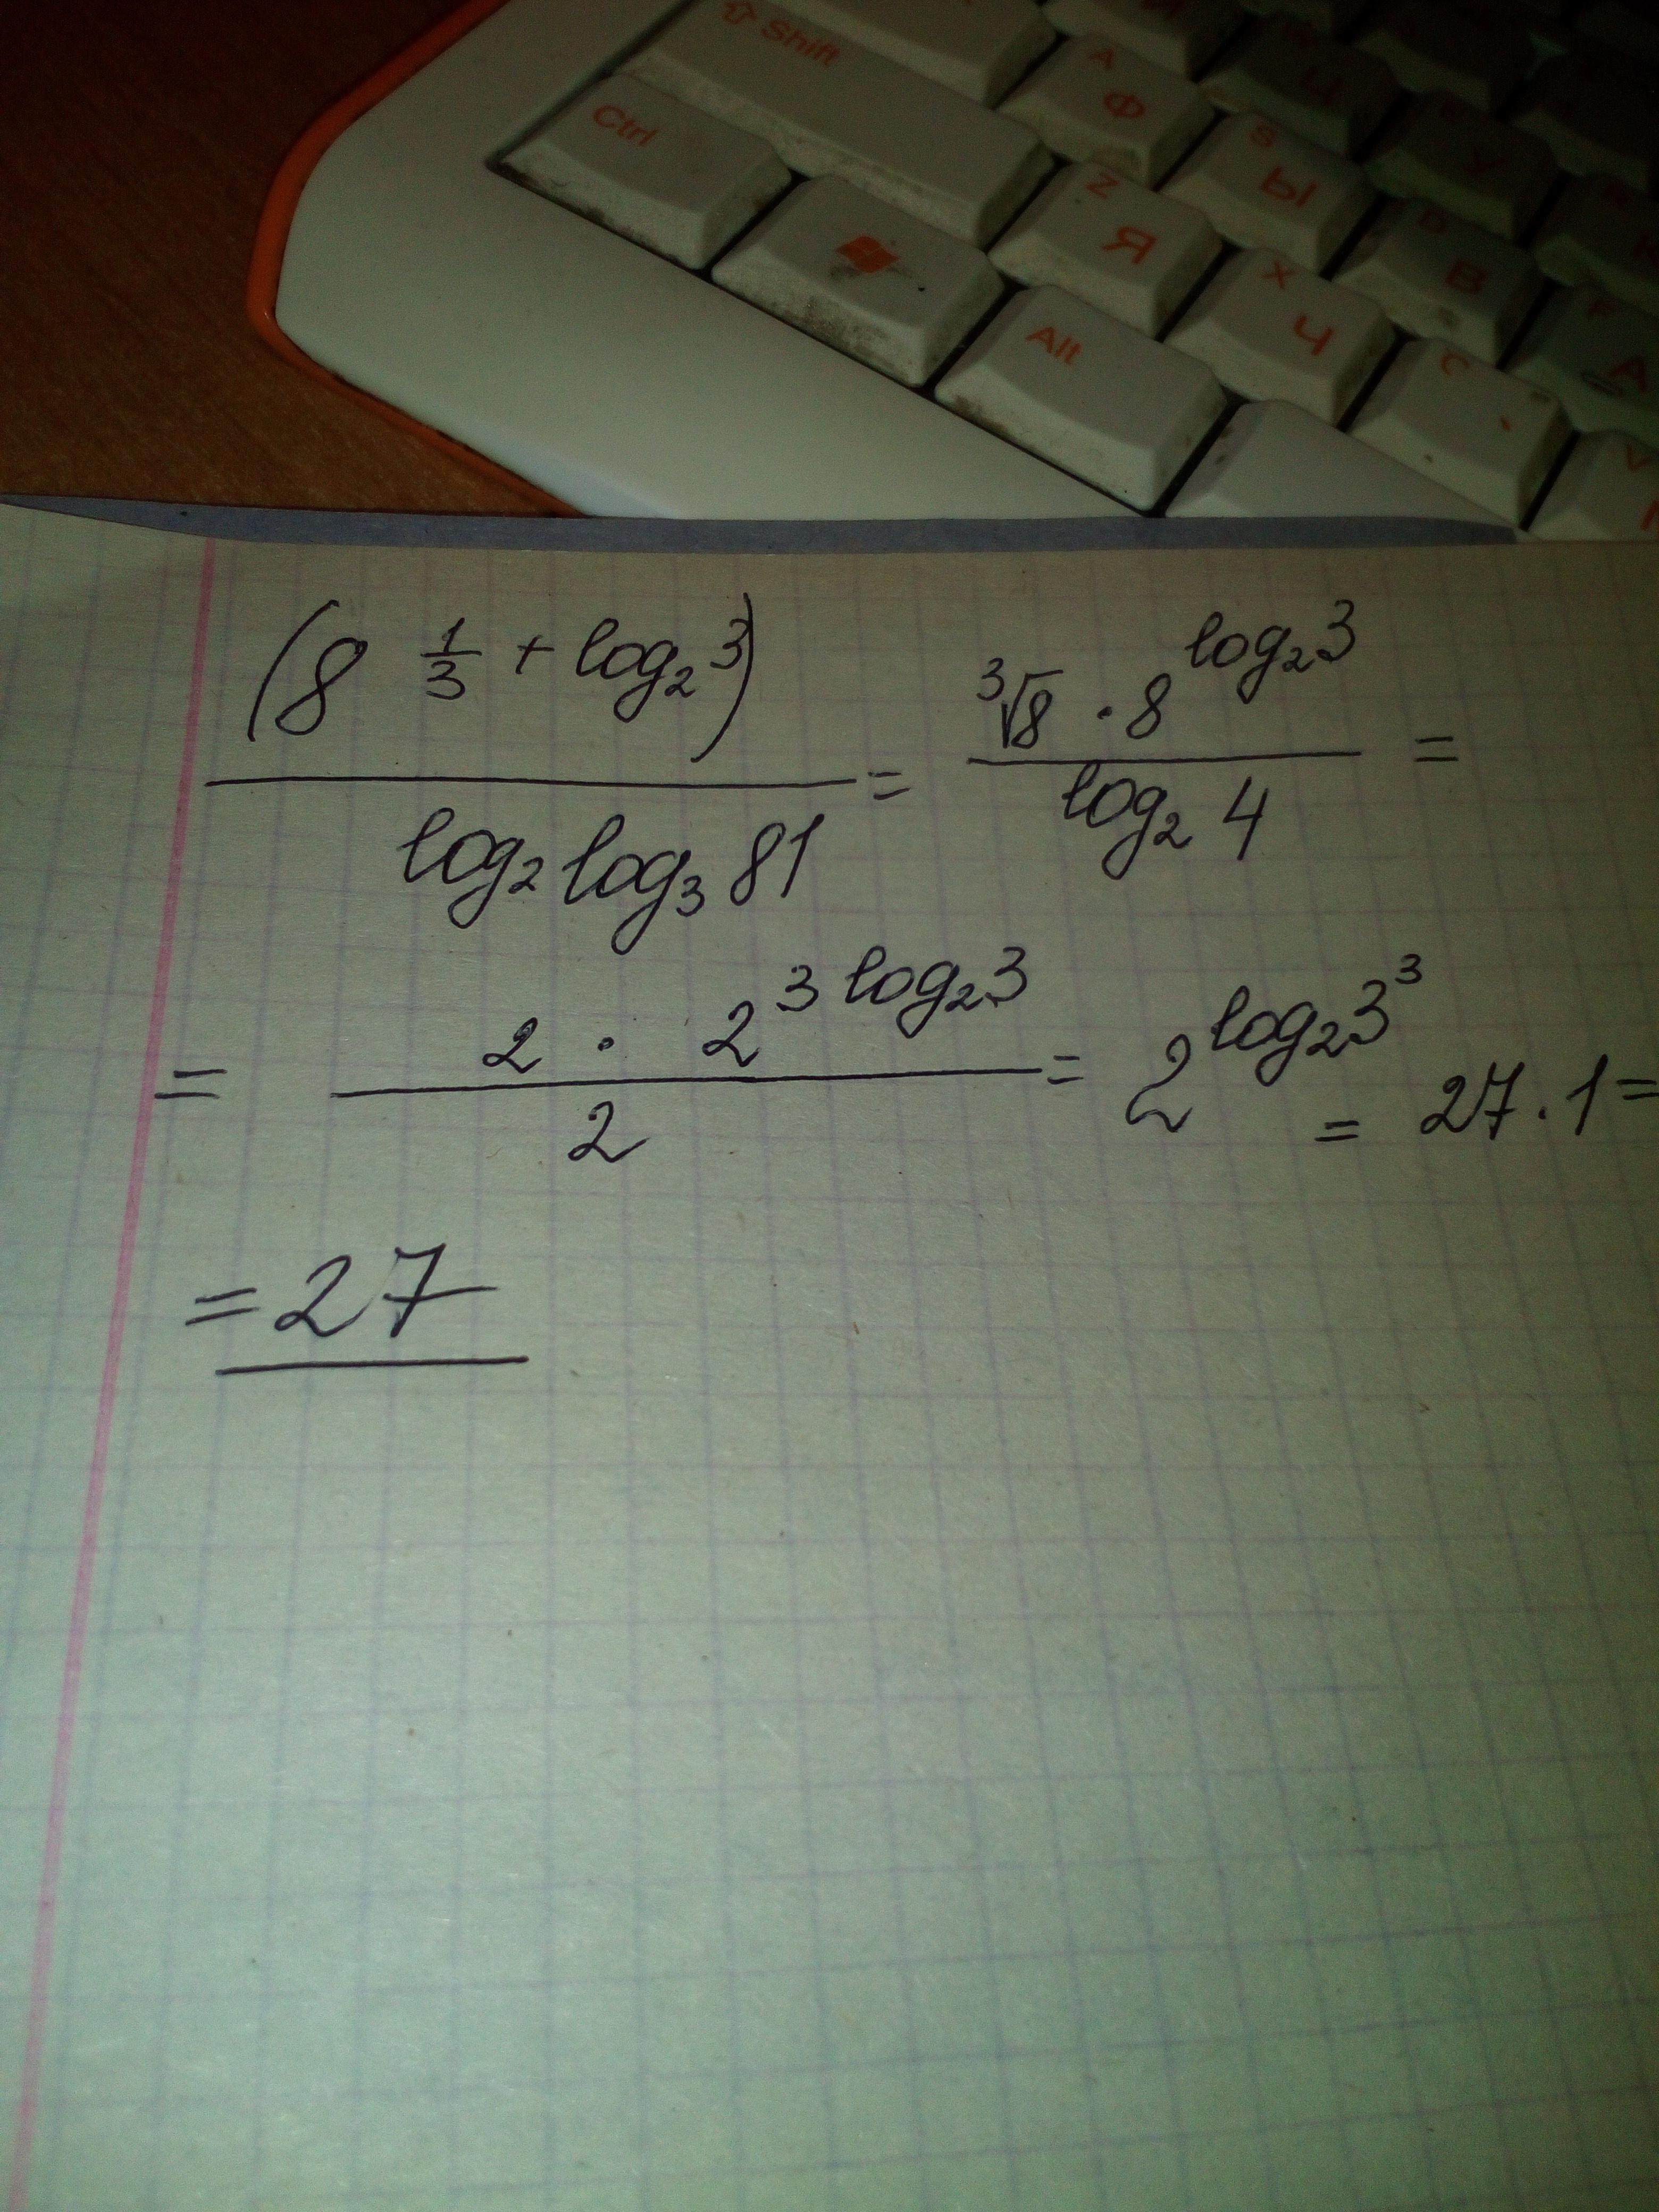 Shift
Ctrl
Alt
A Ф
S Ы
Z Я
X Ч
D В
C
(8^(1/3 + log₂3)) / (log₂ log₃ 81) = (³√8 · 8^(log₂3)) / (log₂ 4) =
= (2 · 2^(3 log₂3)) / 2 = 2^(log₂3³) = 27 · 1 =
= 27